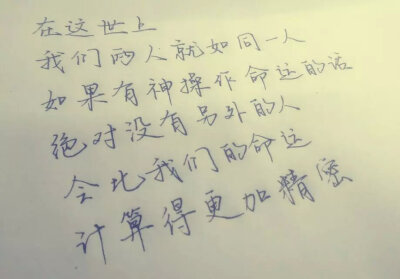 在这世上
我们的人就如同一人
如果有神操作命运的话
绝对没有另外的人
会比我们的命运
计算得更加精密